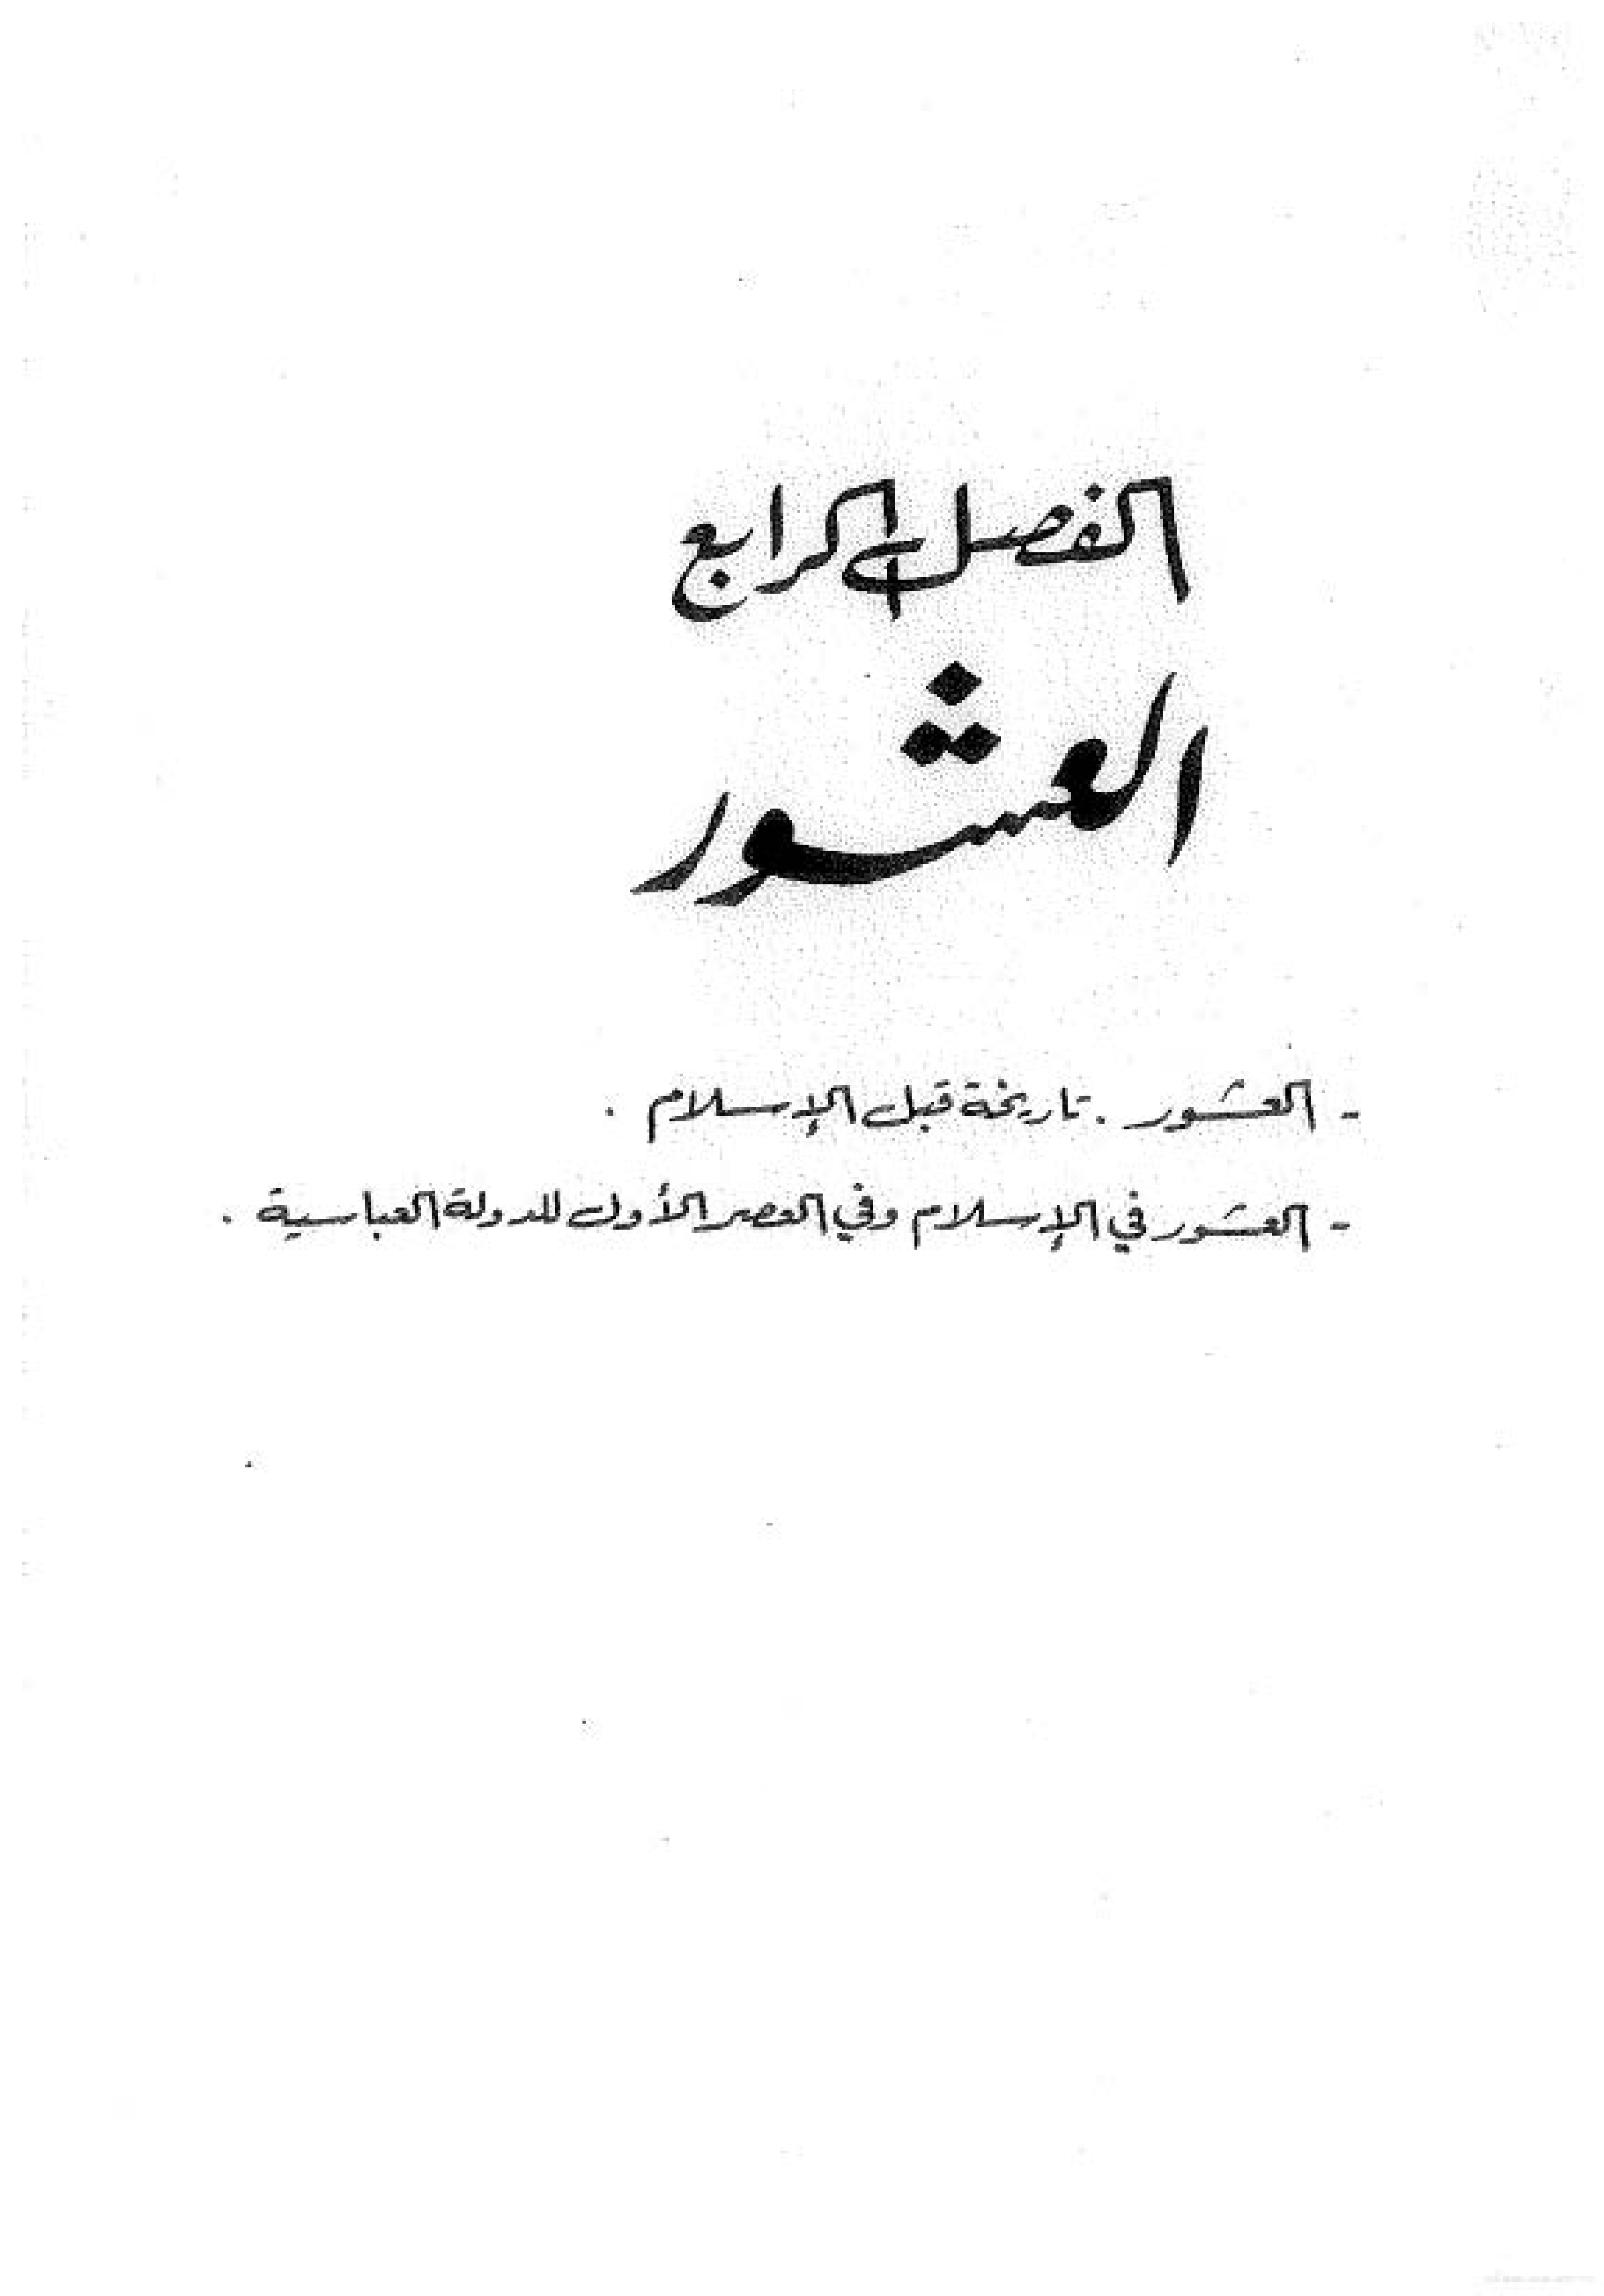 الفصل الرابع
العشور
- العشور . تاريخة قبل الإسلام .
- العشور في الإسلام وفي العصر الأول للدولة العباسية .